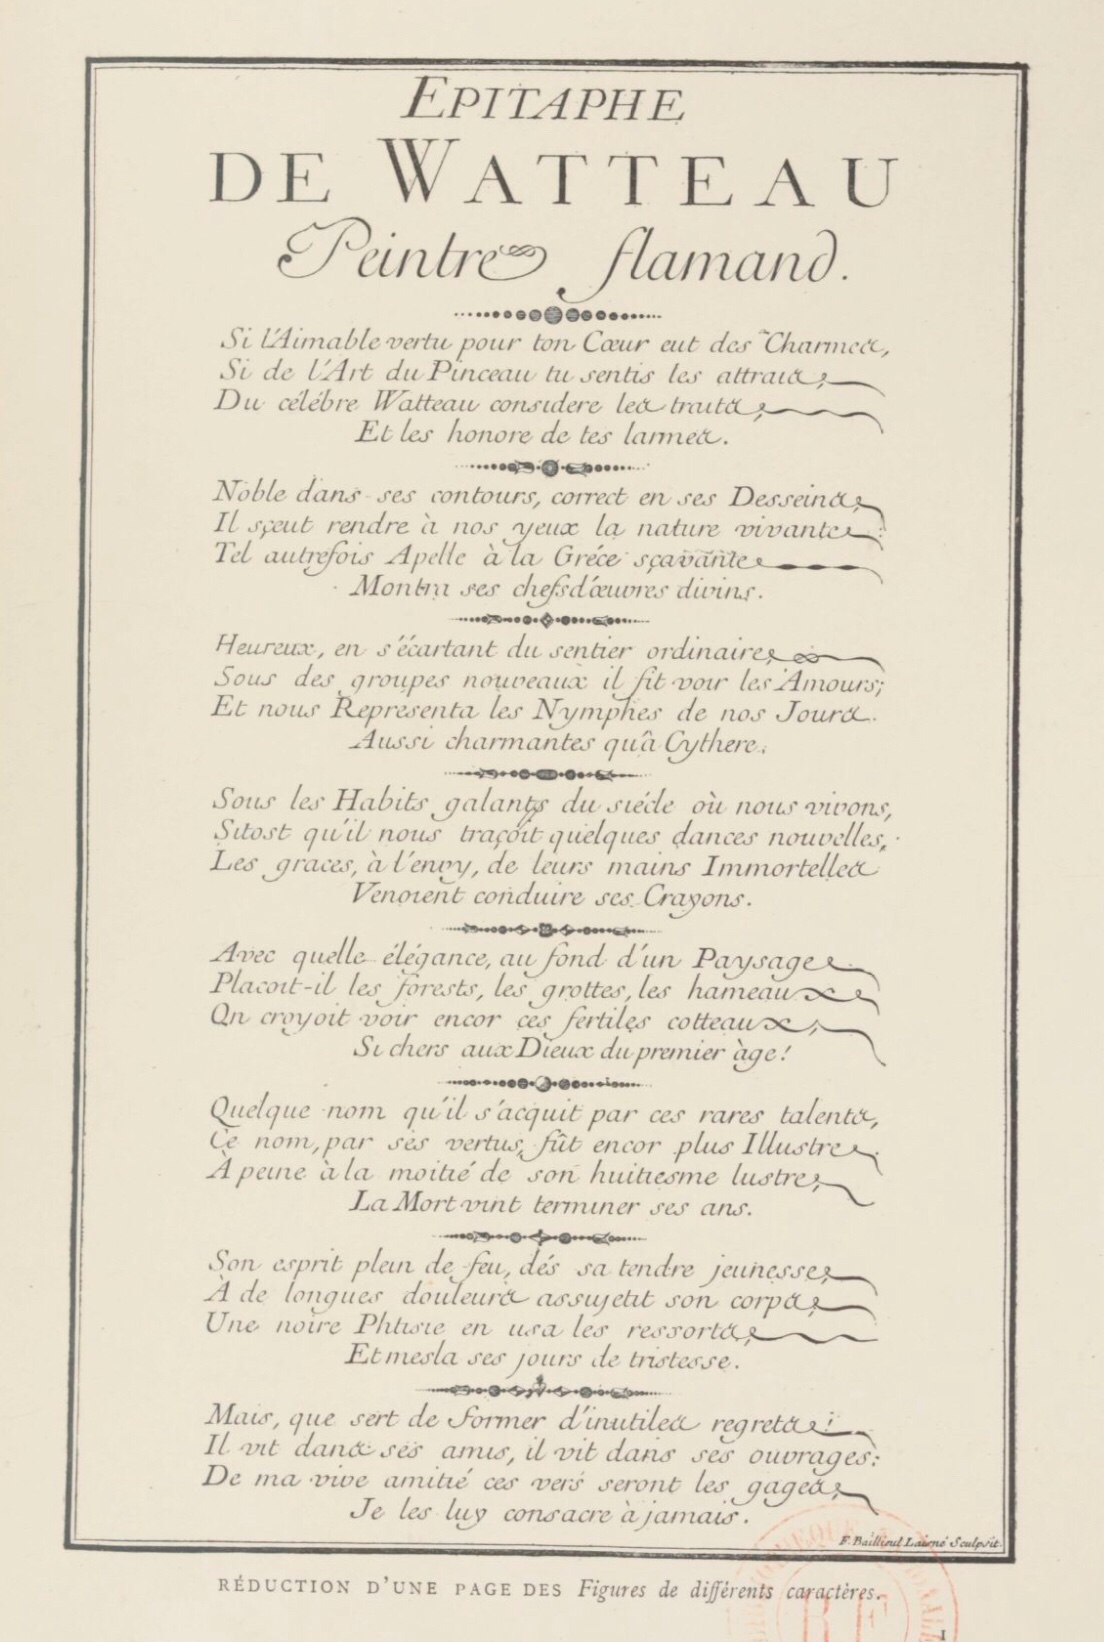 EPITAPHE
DE WATTEAU
Peintre flamand.
Si l'Aimable vertu pour ton Cœur eut des Charmes,
Si de l'Art du Pinceau tu sentis les attrais,
Du célébre Watteau considere les traits,
Et les honore de tes larmes.
Noble dans ses contours, correct en ses Desseins,
Il sçeut rendre à nos yeux la nature vivante
Tel autrefois Apelle à la Gréce sçavante
Montra ses chefs d'œuvres divins.
Heureux, en s'écartant du sentier ordinaire,
Sous des groupes nouveaux il fit voir les Amours;
Et nous Representa les Nymphes de nos Jours.
Aussi charmantes qu'à Cythere.
Sous les Habits galants du siéde où nous vivons,
Sitost qu'il nous traçoit quelques dances nouvelles,
Les graces, à l'envy, de leurs mains Immortelles
Venoient conduire ses Crayons.
Avec quelle élégance, au fond d'un Paysage
Placoit-il les forests, les grottes, les hameaux
On croyoit voir encor ces fertiles cotteaux,
Si chers aux Dieux du premier àge!
Quelque nom qu'il s'acquit par ces rares talents,
Ce nom, par ses vertus, fût encor plus Illustre
À peine à la moitié de son huitiesme lustre,
La Mort vint terminer ses ans.
Son esprit plein de feu, dés sa tendre jeunesse,
À de longues douleurs assujetit son corps,
Une noire Phtisie en usa les ressorts,
Et mesla ses jours de tristesse.
Mais, que sert de former d'inutiles regrets!
Il vit dans ses amis, il vit dans ses ouvrages:
De ma vive amitié ces vers seront les gages,
Je les luy consacre à jamais.
F. Bailleul Laisné Sculpsit.
RÉDUCTION D'UNE PAGE DES Figures de différents caractères.
R F
1